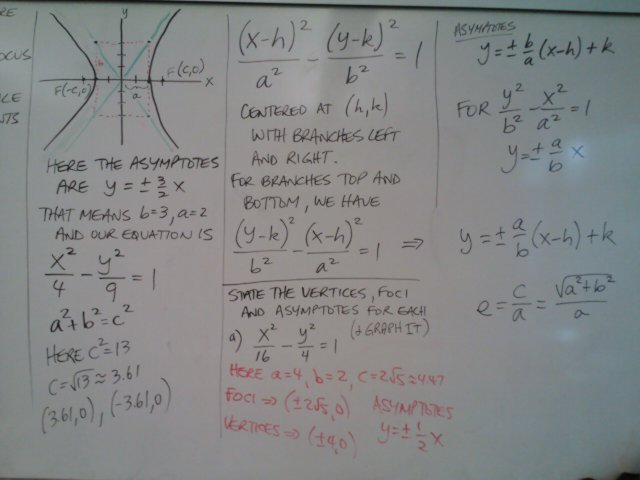 RE
OCUS
LE
NTS
y
F(-c,0)
F(c,0)
x
b
a
HERE THE ASYMPTOTES
ARE y = ± 3/2 x
THAT MEANS b=3, a=2
AND OUR EQUATION IS
x²/4 - y²/9 = 1
a²+b²=c²
HERE c²=13
c=√13 ≈ 3.61
(3.61,0), (-3.61,0)
(x-h)²/a² - (y-k)²/b² = 1
CENTERED AT (h,k)
WITH BRANCHES LEFT
AND RIGHT.
FOR BRANCHES TOP AND
BOTTOM, WE HAVE
(y-k)²/b² - (x-h)²/a² = 1 ⇒
STATE THE VERTICES, FOCI
AND ASYMPTOTES FOR EACH
(+GRAPH IT)
a) x²/16 - y²/4 = 1
HERE a=4, b=2, c=2√5≈4.47
FOCI ⇒ (±2√5,0)
VERTICES ⇒ (±4,0)
ASYMPTOTES
y=±1/2 x
ASYMPTOTES
y=± b/a (x-h)+k
FOR y²/b² - x²/a² = 1
y=± a/b x
y=± a/b (x-h)+k
e = c/a = √a²+b²/a